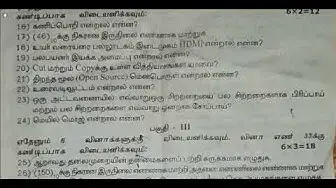 கண்டிப்பாக விடையளிக்கவும். 6×2=12
16) கணிப்பொறி என்றால் என்ன?
17) (46)₁₀க்கு நிகரான இருநிலை எண்ணாக மாற்றுக.
18) உயர் வரையறை பல்லூடக இடைமுகம் (HDMI) என்றால் என்ன?
19) பலபயனர் இயக்க அமைப்பு என்றால் என்ன?
20) Cut மற்றும் Copyக்கு உள்ள வித்தியாசங்கள் யாவை?
21) திறந்த மூல (Open Source) மென்பொருள் என்றால் என்ன?
22) உரைவடிவூட்டம் என்றால் என்ன?
23) ஒரு அட்டவணையில் எவ்வாறு ஒரு சிற்றறையை பல சிற்றறைகளாக பிரிப்பாய்
மற்றும் பல சிற்றறைகளை எவ்வாறு ஒன்றாக சேர்ப்பாய்?
24) மெயில் மெர்ஜ் என்றால் என்ன?
பகுதி - III
ஏதேனும் 6 வினாக்களுக்கு விடையளிக்கவும். வினா எண் 33க்கு
கண்டிப்பாக விடையளிக்கவும். 6×3=18
25) ஆறாவது தலைமுறையின் தன்மைகளைப் பற்றி சுருக்கமாக எழுதுக.
26) (150)₁₀க்கு நிகரான இருநிலை எண்ணாக மாற்றி அதனை